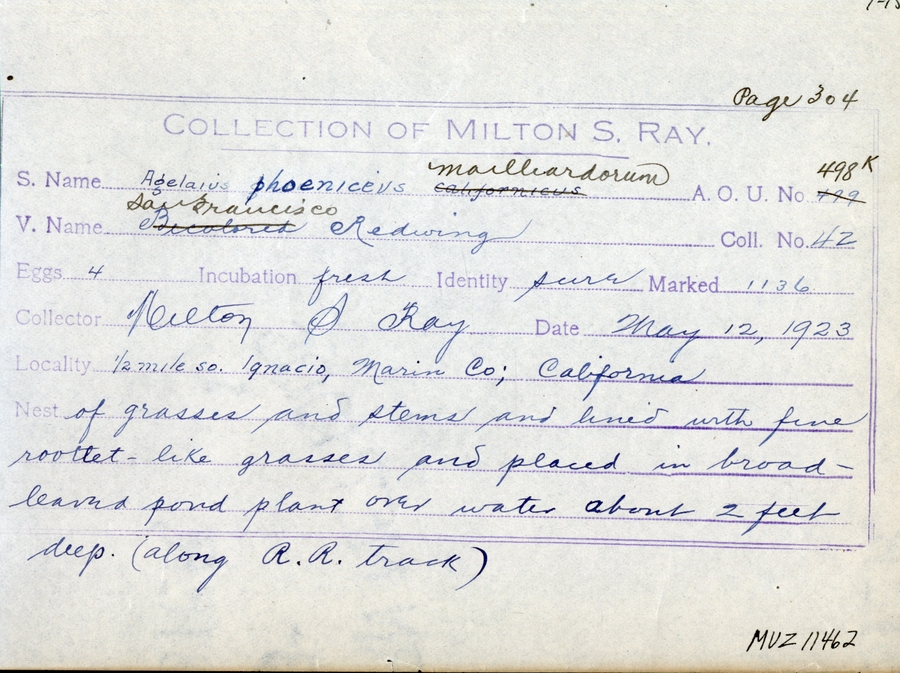 Page 304
COLLECTION OF MILTON S. RAY.
mailliardorum 498K
S. Name Agelaius phoeniceus californicus A. O. U. No. 499
San Francisco
V. Name Bicolored Redwing Coll. No. 42
Eggs 4 Incubation fresh Identity sure Marked 1136
Collector Milton S Ray Date May 12, 1923
Locality 1/2 mile so. Ignacio, Marin Co; California
Nest of grasses and stems and lined with fine
rootlet-like grasses and placed in broad-
leaved pond plant over water about 2 feet
deep. (along R.R. track)
MVZ 11462